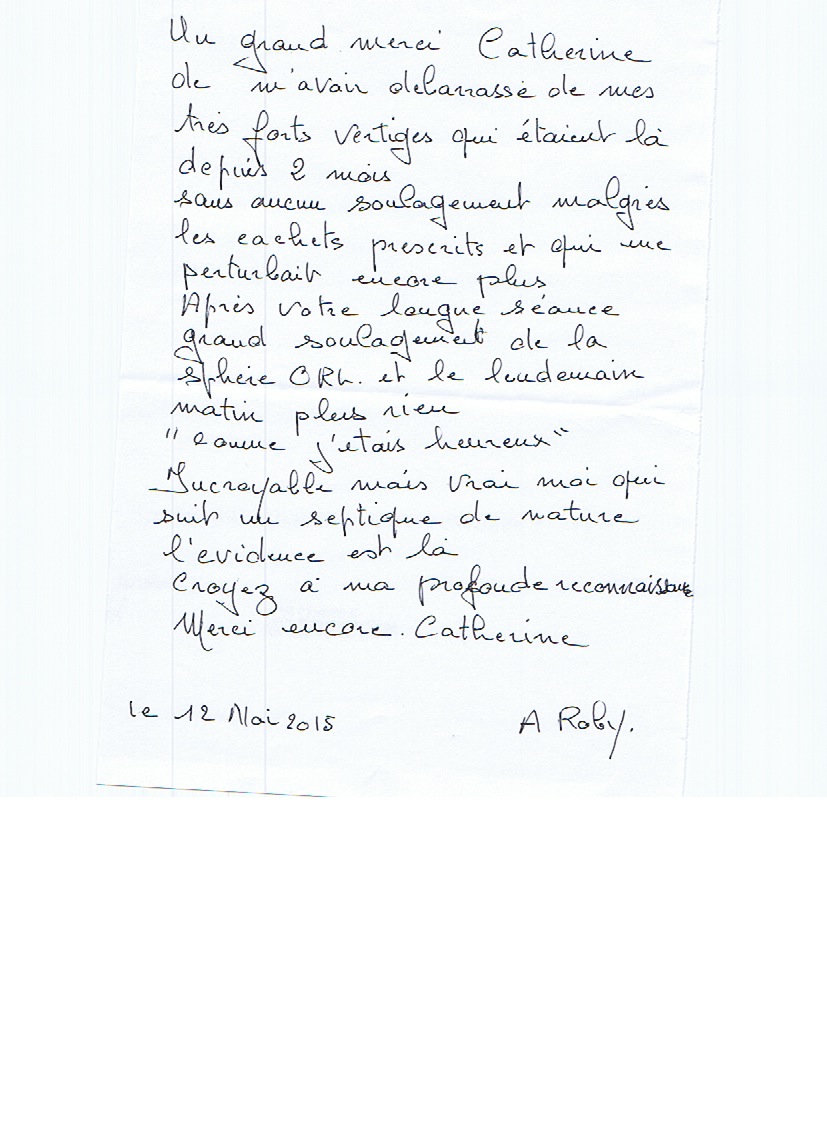 Un grand merci Catherine
de m'avoir debarrassé de mes
très forts vertiges qui étaient là
depuis 2 mois
sans aucun soulagement malgrés
les cachets prescrits et qui me
perturbait encore plus
Après votre longue séance
grand soulagement de la
sphère ORL. et le lendemain
matin plus rien
"comme j'etais heureux"
Incroyable mais vrai moi qui
suit un septique de nature
l'evidence est là
Croyez à ma profonde reconnaissance
Merci encore. Catherine
le 12 Mai 2015 A Roby.